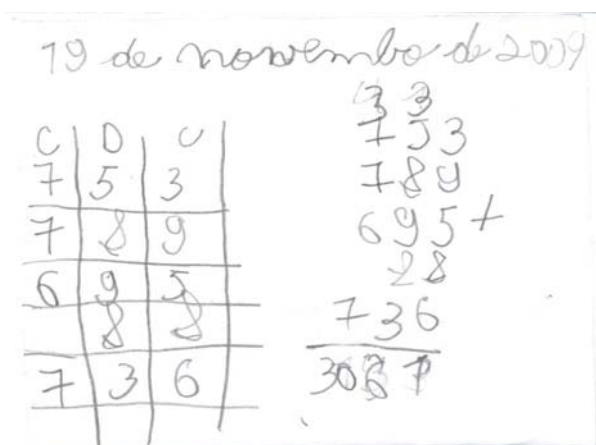 19 de novembo de 2009
C D U
7 5 3
7 8 9
6 9 5
8 8
7 3 6
3 3
753
789
695+
28
736
3067